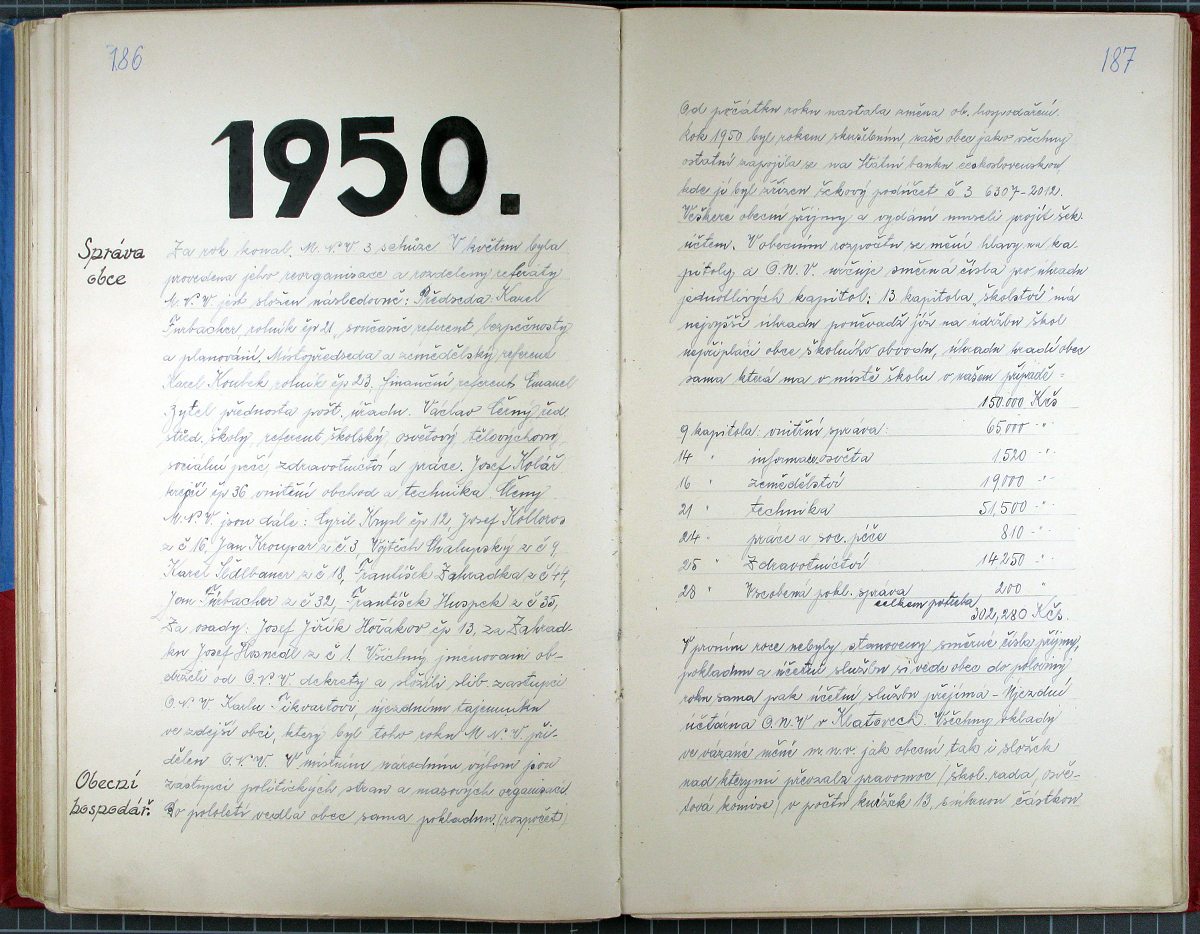 186
1950.
Správa
obce
Za rok konal M.N.V. 3 schůze V květnu byla
provedena jeho reorganisace a rozděleny referáty
M.N.V. jest složen následovně: Předseda: Karel
Fürbacher rolník čp 21, současně referent bezpečnosty
a planování. Místopředseda a zemědělský referent
Karel Koubek rolník čp 23. finanční referent Emanel
Zytel přednosta pošt. úřadu. Václav Černý řed.
střed. školy, referent školský, osvětový tělovýchovy,
sociální péčé, zdravotnictví a práce. Josef Kolář
krejčí čp 36 vnitřní obchod a technika. Členy
M.N.V. jsou dále: Cyril Krysl čp 12, Josef Kolloros
z č 16, Jan Kroupar z č 3, Vojtěch Chalupský z č 9
Karel z č 18, František Zahradka z č 44,
Jan Fürbacher z č 32, František Huspek z č 35,
Za osady: Josef Jiřík Hořákov čp 13, za Zahrad-
ku Josef Hosnedl z č 1. Všichny jmenovaní ob-
drželi od O.N.V. dekrety a složili slib zastupci
O.N.V. Karlu újezdním tajemníku
ve zdejší obci, který byl toho roku M.N.V. při-
dělen O.N.V. V místním narodním výboru jsou
zastupci politických stran a masových organisací
Obecní
hospodář.
Do pololetí vedla obec sama pokladnu. (rozpočet)
187
Od počátku roku nastala změna ob. hospodaření.
Rok 1950 byl rokem skušebním, naše obec jako všechny
ostatní zapojila se na Státní banku československou,
kde jí byl zřízen šekový podúčet č 3 6307-2012.
Veškeré obecní příjmy a vydání museli projít šek.
účtem. V obecním rozpočtu se mění hlavy na ka-
pitoly a O.N.V. určuje směrná čísla pro úhradu
jednotlivých kapitol: 13. kapitola "školství" má
nejvyšší úhradu poněvadž již na údržbu škol
nepřipláci obce školního obvodu, úhradu hradí obec
sama která ma v místě školu v našem případě -
150.000 Kčs
9 kapitola: vnitřní sprava: 65000 -"-
14 " informace, osvěta 1.520 -"-
16 " zemědělství 19000 -"-
21 " technika 51,500 -"-
24 " práce a soc. péče 810 -"-
25 " Zdravotnictví 14250 -"-
28 " Všeobená pokl. správa 200 "
celkem potřeba 302,280 Kčs.
V prvním roce nebyly stanoveny směrné čísla příjmy,
pokladnu a účetní službu si vede obec do poloviny
roku sama pak účetní službu přejíma - Ujezdní
účtárna O.N.V. v Klatovech. Všechny vklady
ve vázané měně m.n.v. jak obecní tak i složek
nad kterymi převzala pravomoc (škol. rada, osvě-
tová komise) v počtu knížek 13, s úhrnou částkou